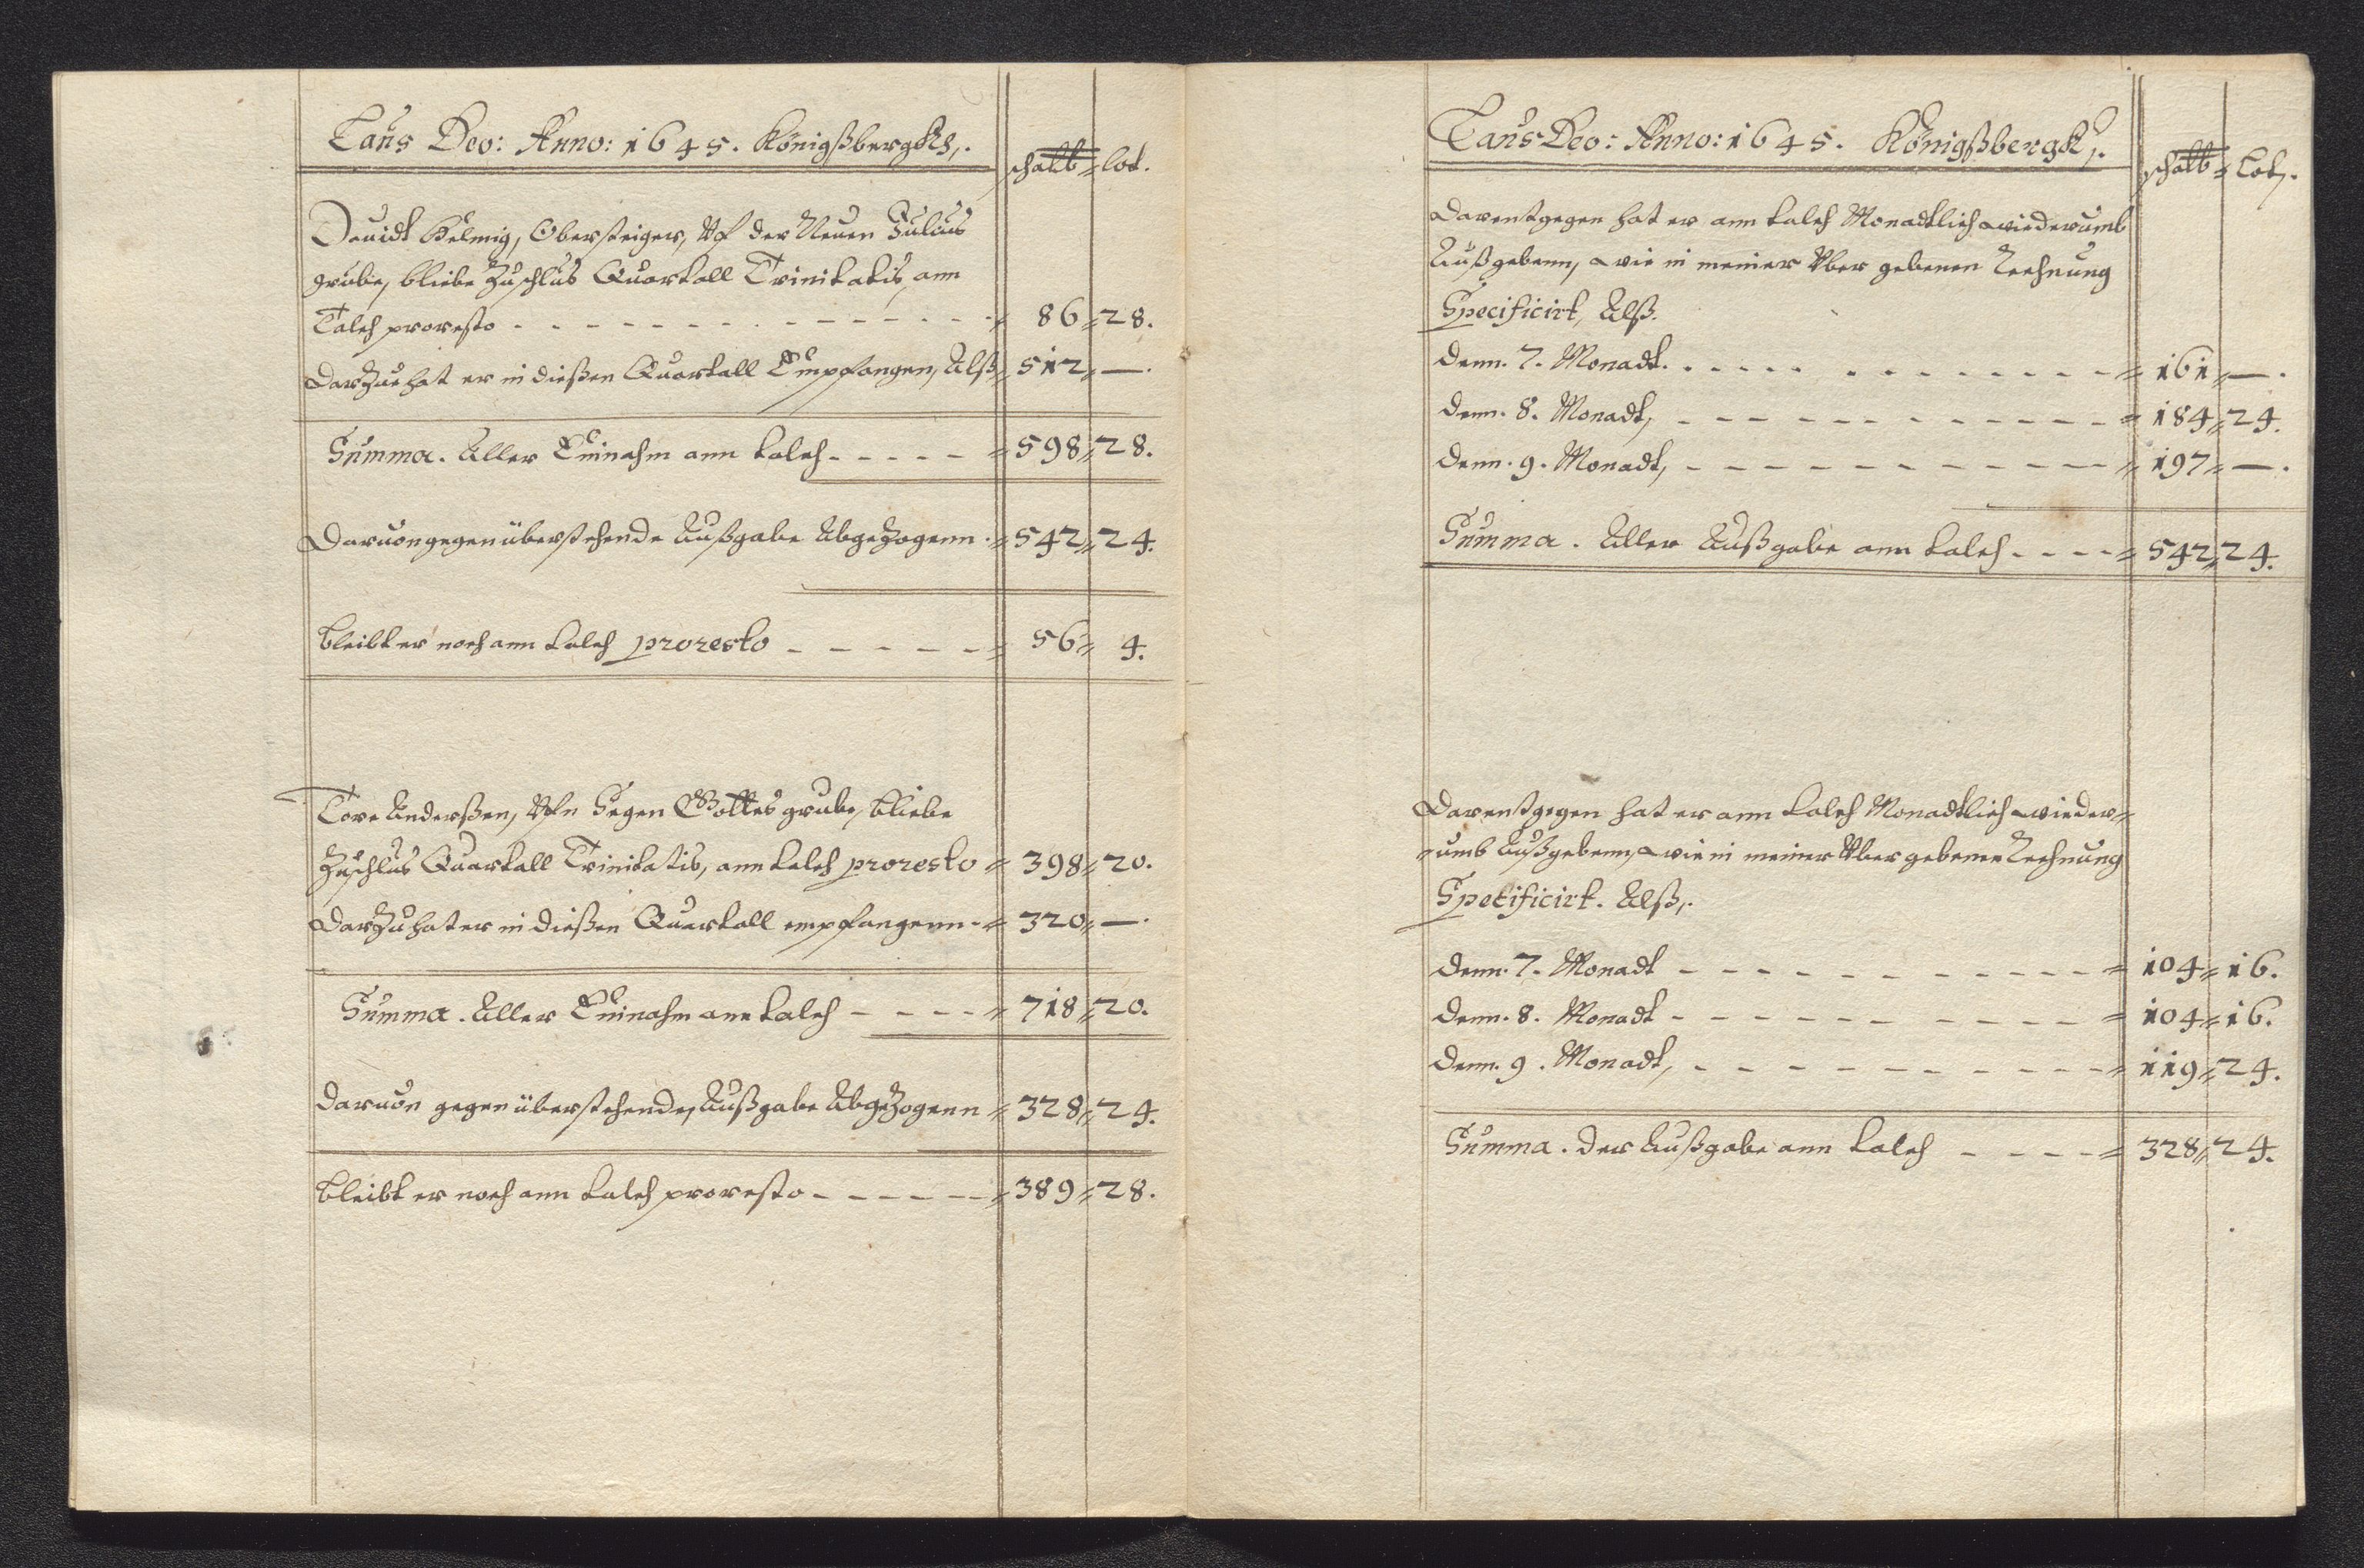 Laus Deo: Anno: 1645. Königßbergkh,.
schalb = lot.
Dauidt Helmig, Obersteiger, Vf der Neuen Julius
grube, bliebe Zuschlus Quartall Trinitatis, ann
Talch proresto - - - - - - - - - - - - = 86 = 28.
Darzue hat er in dießen Quartall Empfangen, Alß = 512 = —.
Summa. Aller Einahm ann talch - - - - - = 598 = 28.
Daruon gegenüberstehende Außgabe Abgezogenn. = 542 = 24.
Bleibt er noch ann talch proresto - - - - - = 56 = 4.
Tore Anderßen, Vfn Segen Gottes grube, bliebe
Zuschlus Quartall Trinitatis, ann talch proresto = 398 = 20.
Darzu hat er in dießen Quartall empfangenn - = 320 = —.
Summa. Aller Einahm ann talch - - - - = 718 = 20.
Daruon gegenüberstehende, Außgabe Abgezogenn = 328 = 24.
Bleibt er noch ann talch proresto - - - - - = 389 = 28.
Laus Deo: Anno: 1645. Königßbergk,.
schalb = Lot,.
Darentgegen hat er ann talch Monadtlich wiederumb
Außgebenn, wie in meiner Vbergebenen Rechnung
Specificirt, Alß.
Denn. 7. Monadt. - - - - - - - - - - = 161 = —.
Denn. 8. Monadt, - - - - - - - - - - = 184 = 24.
Denn. 9. Monadt, - - - - - - - - - - = 197 = —.
Summa. Aller Außgabe ann talch - - - - = 542 = 24.
Darentgegen hat er ann talch Monadtlich wieder=
=umb Außgebenn, wie in meiner Vbergebene Rechnung
Specificirt. Alß,.
Denn. 7. Monadt - - - - - - - - - - = 104 = 16.
Denn. 8. Monadt - - - - - - - - - - = 104 = 16.
Denn. 9. Monadt, - - - - - - - - - - = 119 = 24.
Summa. Der Außgabe ann talch - - - - = 328 = 24.